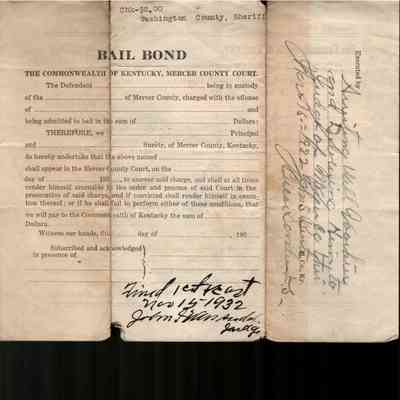 Chk-$2.00
Washington County, Sheriff
BAIL BOND
THE COMMONWEALTH OF KENTUCKY, MERCER COUNTY COURT.
The Defendant being in custody
of the of Mercer County, charged with the offense
of and
being admitted to bail in the sum of Dollars:
THEREFORE, we Principal
and Surety, of Mercer County, Kentucky,
do hereby undertake that the above named
shall appear in the Mercer County Court, on the
day of 190 to answer said charge, and shall at all times
render himself amenable to the order and process of said Court in the
prosecution of said charge, and if convicted shall render himself in execu-
tion thereof; or if he shall fail to perform either of these conditions, that
we will pay to the Commonwealth of Kentucky the sum of
Dollars.
Witness our hands, this day of 190
Subscribed and acknowledged
in presence of
Fined 1 Cent & Cost
Nov 15-1932
John
Judge
Executed by
Arresting
and Delivering him to
Judge of Mercer Co
Nov 15-1932